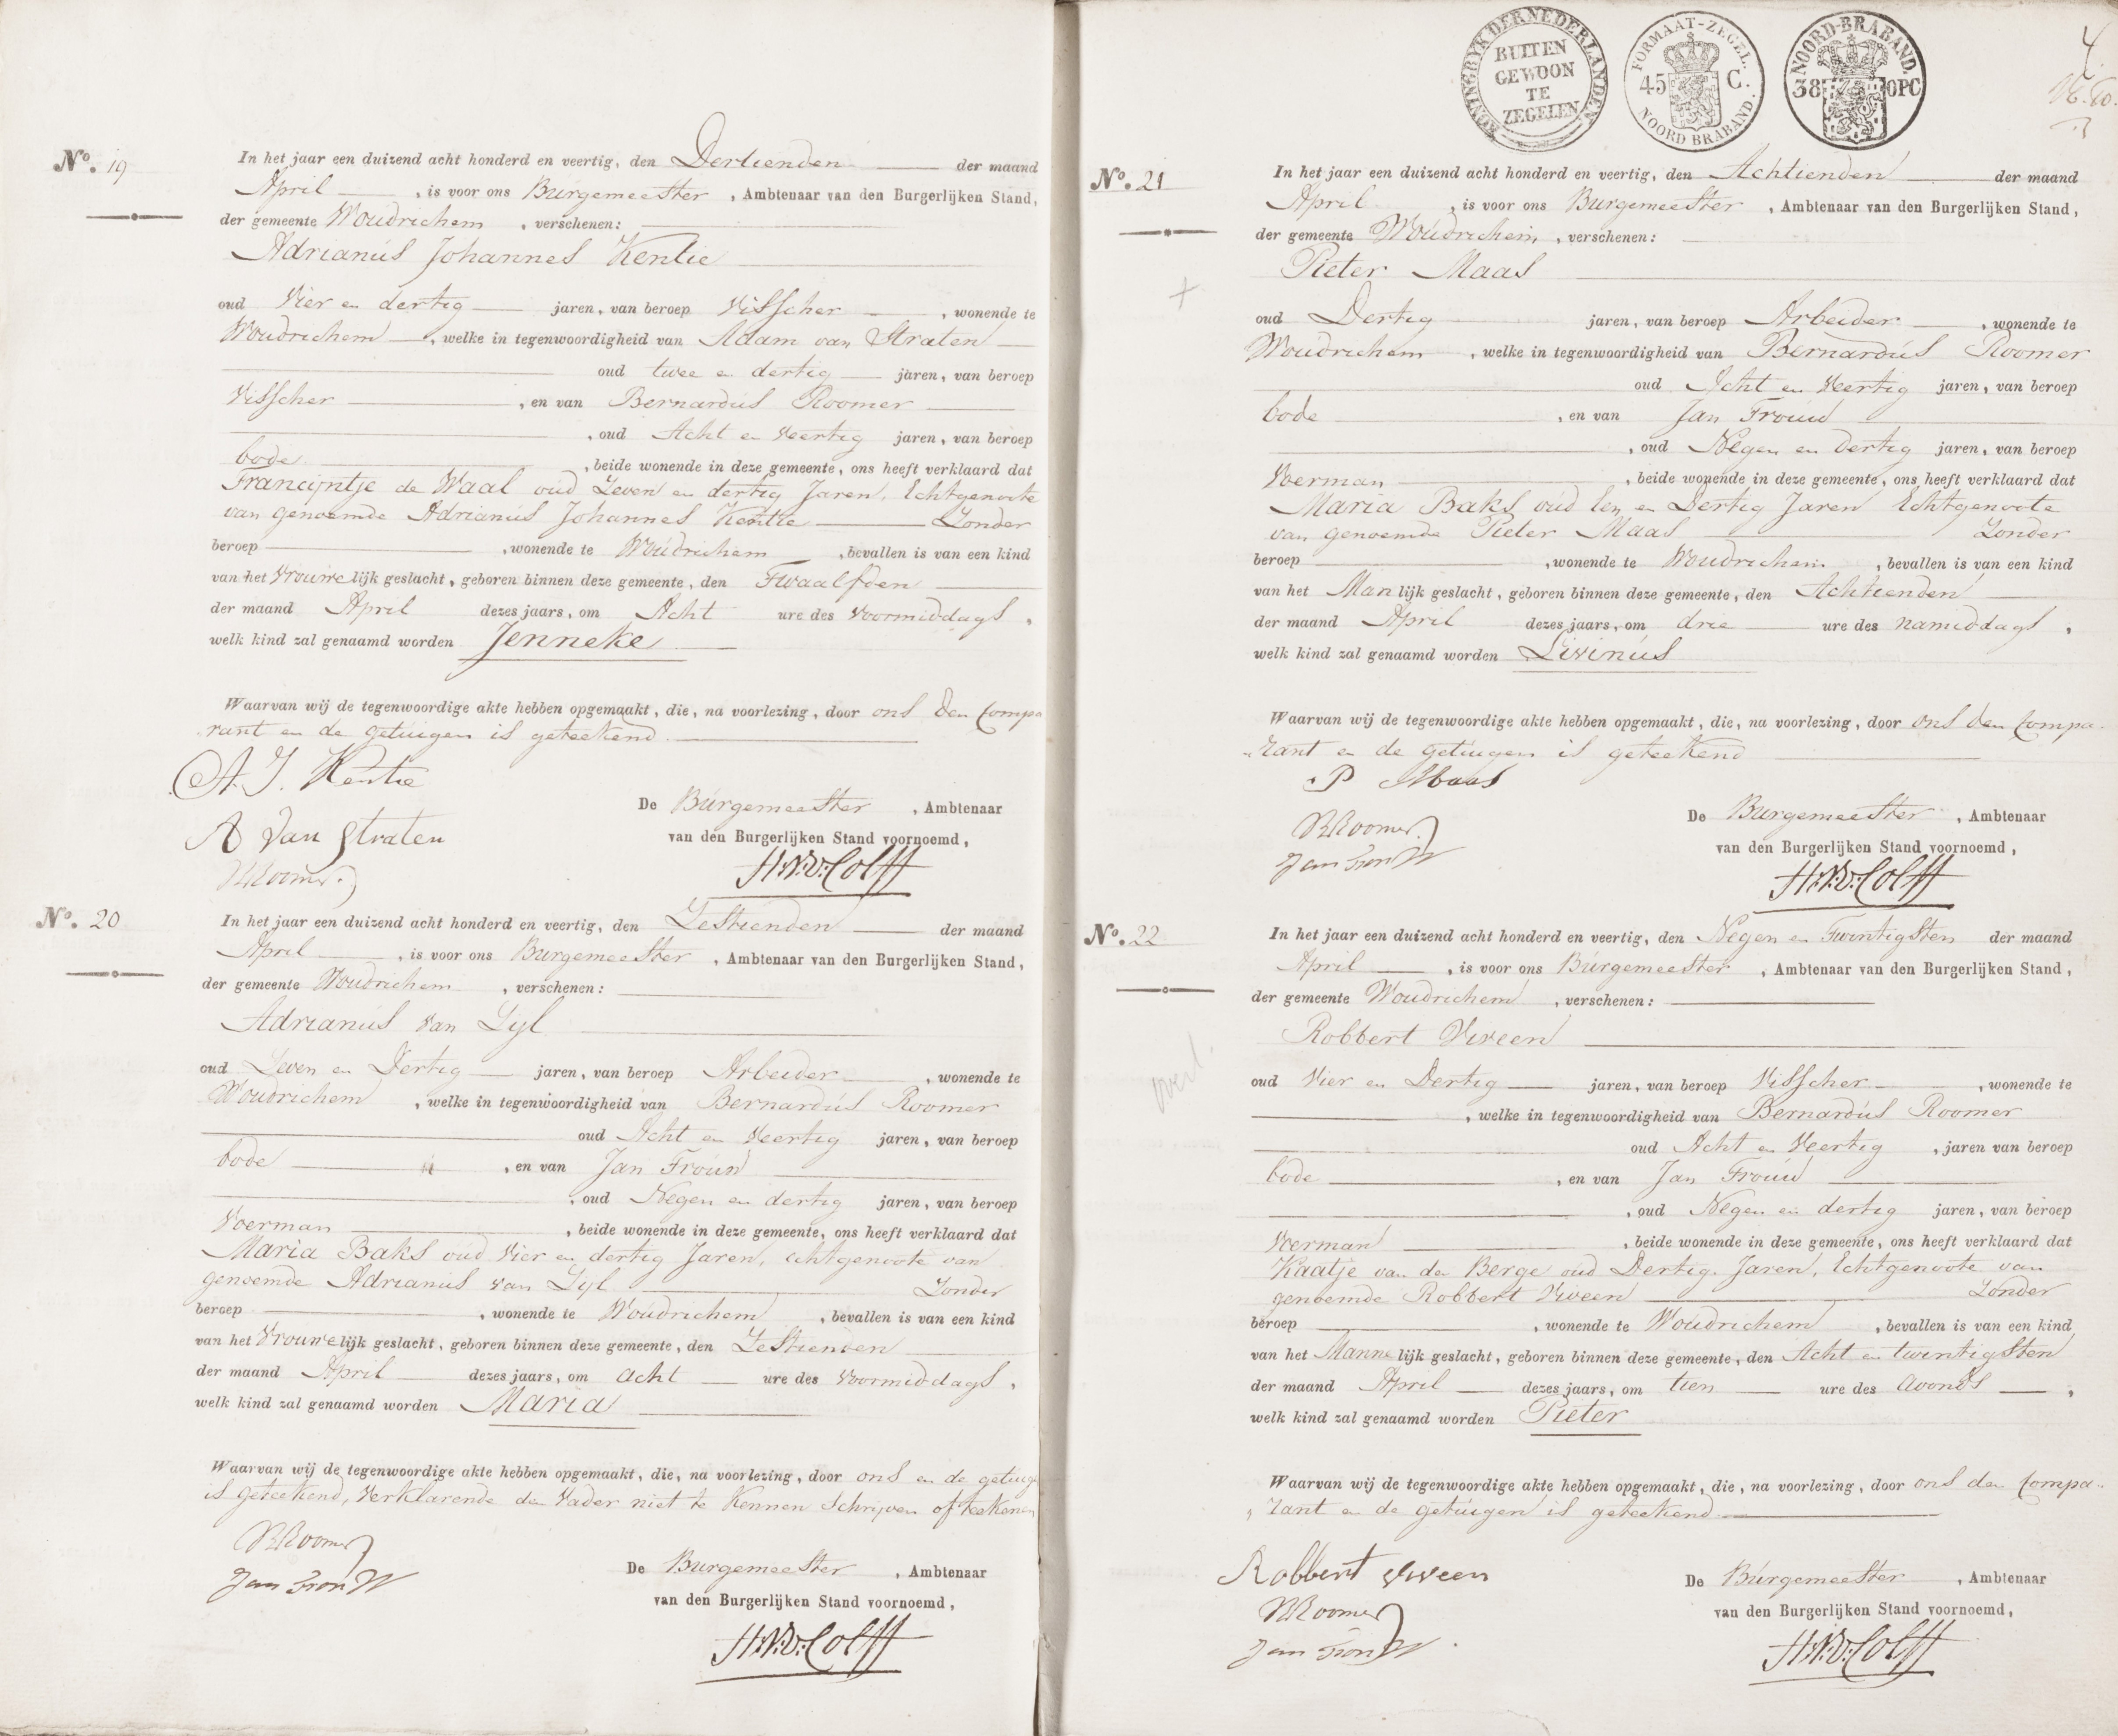 Nº. 19
In het jaar een duizend acht honderd en veertig, den Dertienden der maand
April , is voor ons Burgemeester , Ambtenaar van den Burgerlijken Stand,
der gemeente Woudrichem , verschenen:
Adrianus Johannes Kentie
oud Vier en dertig jaren, van beroep Visscher , wonende te
Woudrichem , welke in tegenwoordigheid van Adam van Straten
oud twee en dertig jaren, van beroep
Visscher , en van Bernardus Roomer
, oud Acht en Veertig jaren, van beroep
bode , beide wonende in deze gemeente, ons heeft verklaard dat
Francijntje de Waal oud Zeven en dertig Jaren, Echtgenoote
van genoemde Adrianus Johannes Kentie Zonder
beroep , wonende te Woudrichem , bevallen is van een kind
van het Vrouwelijk geslacht, geboren binnen deze gemeente, den Twaalfden
der maand April dezes jaars, om Acht ure des Voormiddags ,
welk kind zal genaamd worden Jenneke
Waarvan wij de tegenwoordige akte hebben opgemaakt, die, na voorlezing, door ons den Compa
rant en de getuigen is geteekend
A. J. Kentie
De Burgemeester , Ambtenaar
A van Straten
van den Burgerlijken Stand voornoemd,
BRoomer.
H.N.v:Colff
Nº. 20
In het jaar een duizend acht honderd en veertig, den Zestienden der maand
April , is voor ons Burgemeester , Ambtenaar van den Burgerlijken Stand,
der gemeente Woudrichem , verschenen:
Adrianus van Zyl
oud Zeven en Dertig jaren, van beroep Arbeider , wonende te
Woudrichem , welke in tegenwoordigheid van Bernardus Roomer
oud Acht en Veertig jaren, van beroep
bode , en van Jan Trouw
, oud Negen en dertig jaren, van beroep
Voerman , beide wonende in deze gemeente, ons heeft verklaard dat
Maria Baks oud Vier en dertig Jaren, echtgenoote van
genoemde Adrianus van Zyl Zonder
beroep , wonende te Woudrichem , bevallen is van een kind
van het Vrouwelijk geslacht, geboren binnen deze gemeente, den Zestienden
der maand April dezes jaars, om acht ure des Voormiddags ,
welk kind zal genaamd worden Maria
Waarvan wij de tegenwoordige akte hebben opgemaakt, die, na voorlezing, door ons en de getuige
is geteekend, verklarende den Vader niet te Kennen Schrijven of teekenen
BRoomer
De Burgemeester , Ambtenaar
Jan TrouW
van den Burgerlijken Stand voornoemd,
H.N.v:Colff
KONINGRYK DER NEDERLANDEN
BUITEN
GEWOON
TE
ZEGELEN
FORMAAT-ZEGEL.
45 C.
NOORD BRABAND.
NOORD-BRABAND.
38 OPC
4
Nº. 21
In het jaar een duizend acht honderd en veertig, den Achtienden der maand
April , is voor ons Burgemeester , Ambtenaar van den Burgerlijken Stand,
der gemeente Woudrichem , verschenen:
Pieter Maas
oud Dertig jaren, van beroep Arbeider , wonende te
Woudrichem , welke in tegenwoordigheid van Bernardus Roomer
oud Acht en Veertig jaren, van beroep
bode , en van Jan Trouw
, oud Negen en Dertig jaren, van beroep
Voerman , beide wonende in deze gemeente, ons heeft verklaard dat
Maria Baks oud Een en Dertig Jaren Echtgenoote
van genoemde Pieter Maas Zonder
beroep , wonende te Woudrichem , bevallen is van een kind
van het Manlijk geslacht, geboren binnen deze gemeente, den Achtienden
der maand April dezes jaars, om drie ure des namiddags ,
welk kind zal genaamd worden Livinus
Waarvan wij de tegenwoordige akte hebben opgemaakt, die, na voorlezing, door ons den Compa-
rant en de getuigen is geteekend
P Maas
De Burgemeester , Ambtenaar
BRoomer.
van den Burgerlijken Stand voornoemd,
Jan TrouW
H.N.v:Colff
Nº. 22
In het jaar een duizend acht honderd en veertig, den Negen en Twintigsten der maand
April , is voor ons Burgemeester , Ambtenaar van den Burgerlijken Stand,
der gemeente Woudrichem , verschenen:
Robbert Viveen
overl.
oud Vier en Dertig jaren, van beroep Visscher , wonende te
, welke in tegenwoordigheid van Bernardus Roomer
oud Acht en Veertig , jaren van beroep
bode , en van Jan Trouw
, oud Negen en dertig jaren, van beroep
Voerman , beide wonende in deze gemeente, ons heeft verklaard dat
Kaatje van den Berge oud Dertig Jaren, Echtgenoote van
genoemde Robbert Viveen Zonder
beroep , wonende te Woudrichem , bevallen is van een kind
van het Mannelijk geslacht, geboren binnen deze gemeente, den Acht en twintigsten
der maand April dezes jaars, om tien ure des avonds ,
welk kind zal genaamd worden Pieter
Waarvan wij de tegenwoordige akte hebben opgemaakt, die, na voorlezing, door ons den Compa-
rant en de getuigen is geteekend
Robbert viveen
De Burgemeester , Ambtenaar
BRoomer
van den Burgerlijken Stand voornoemd,
Jan TrouW
H.N.v:Colff